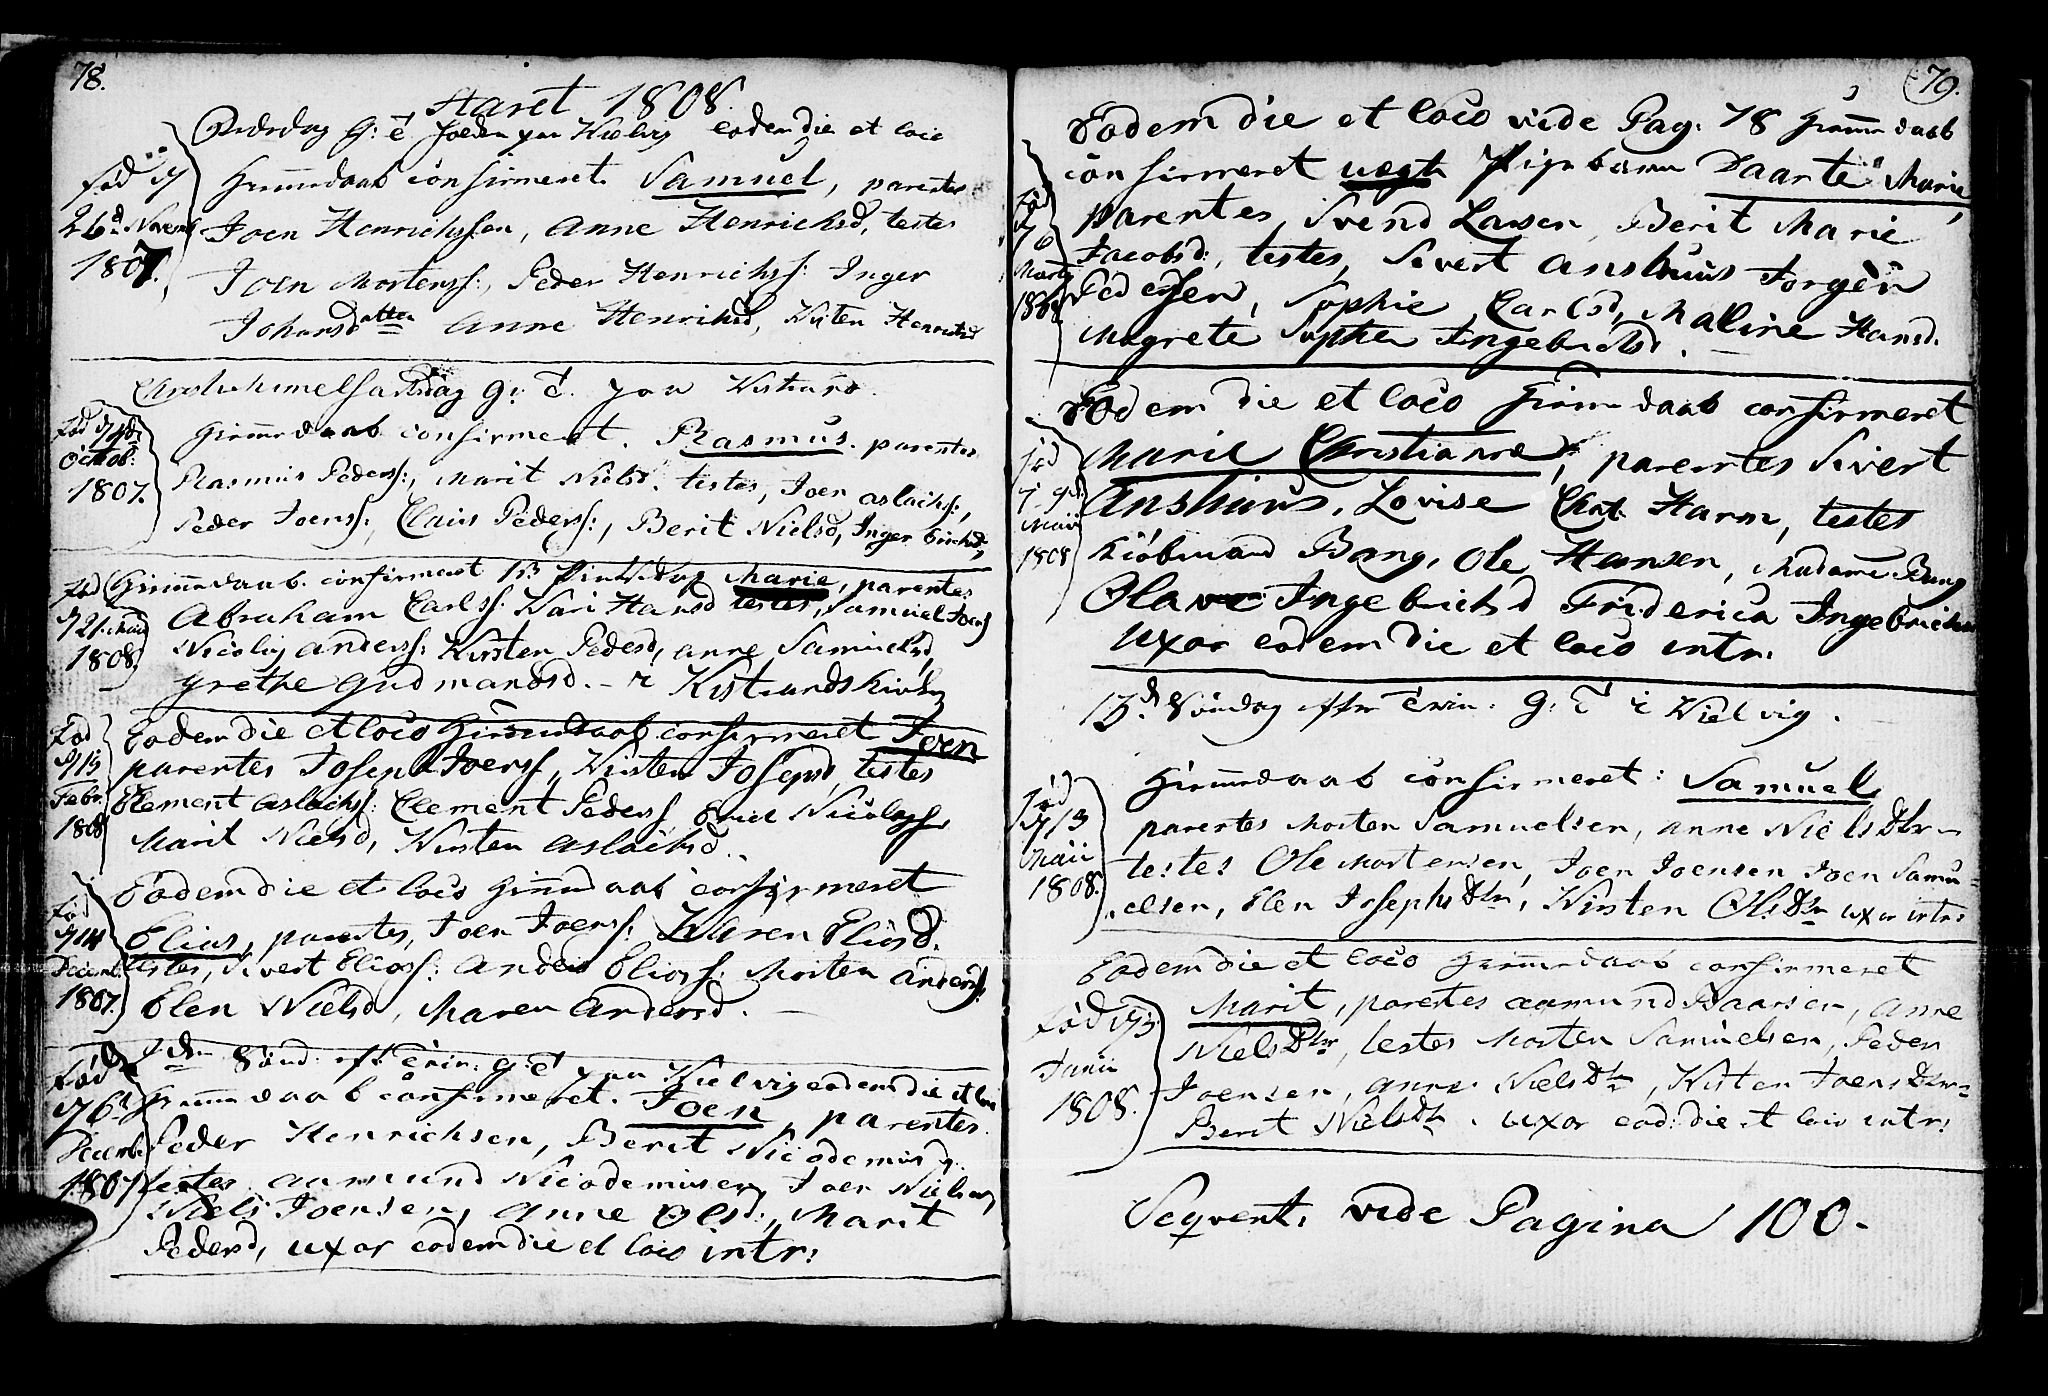 78.
Aaret 1808.
G: T. holden paa Kielvig eodem die et loco
Hiemmedaab confirmeret. Samuel, parentes
Joen Henrichssen, Anne Henrichsd, testes
Joen Mortenss:, Peder Henrichss: Inger
Johansdatter Anne Henrichsd, Kirsten Henrichsd
fød d
26d Novemb
1807.
Christi himmelfartsdag G: T. paa Kistrand.
Hiemmedaab confirmeret. Rasmus. parentes
Rasmus Pederss:, Marit Nielsd. testes, Joen Aslachs:,
Peder Joenss:, Claus Pederss:, Berit Nielsd, Inger
fød d
Octob:
1807.
Hiemmedaab. confirmeret Marie, parentes
Abraham Carlss: Kari Hansd testes, Samuel Joenss
Nicolay Anderss: Kirsten Pedersd, Anne Samuelsd,
Grethe Gudmandsd. - i Kistrands Kirke
fød
d 21. Maij
1808
Eodem die et loco Hiemmedaab confirmeret Joen
parentes Joseph Joenss, Kirsten Josephsd, testes
Clement Aslachss: Clement Pederss Nicolayss,
Marit Nielsd, Kirsten Aslachsd.
Fød
d 15
Febr.
1808
Eodem die et loco Hiemmedaab confirmeret
Elias, parentes, Joen Joenss: Karen Eliasd.
testes, Sivert Eliass: Anders Eliass: Morten Anderss:
Elen Nielsd, Maren Andersd.
fød
d 14
Decemb.
1807.
Sønd: eft Trin: G: T paa Kielvig eodem die et loco
Hiemmedaab confirmeret. Joen, parentes
Peder Henrichsen, Berit Nicodemusd.
testes Aamund Nicodemusen, Joen Nielsen,
Niels Joensen, Anne Olsd:, Marit
Pedersd, uxor eodem die et loco intr:
Fød
d 6d
Decemb.
1807
79.
Eodem die et loco vide Pag. 78 Hiemmedaab
confirmeret uægte Pigebarn Daarte Marie
parentes, Svend Larsen, Berit Marie
Jacobsd:, testes, Sivert Anshuus Jørgen
Pedersen, Sophie Carlsd, Maline Hansd.
Magrete Sophia Ingebrichtsd.
Fød
d 6
Martij
1808
Eodem die et loco Hiemmedaab confirmeret
Marie Christianne, parentes Sivert
Anshuus, Lovise Chat. Harm, testes
Kiøbmand Bang, Ole Hansen, Madame Bang
Olave Ingebrichtsd Friderica Ingebrichtsd
uxor eodem die et loco intr:
fød
d. 9d
Maii
1808
13d Søndag efter Trin: G: T i Kielvig.
Hiemmedaab confirmeret: Samuel
parentes Morten Samuelsen, Anne Niels Dtr
testes Ole Mortensen, Joen Joensen Joen Samu-
elsen, Elen Josephs Dtr, Kirsten Ols Dtr uxor intr:
fød
d 13
Maii
1808.
Eodem die et loco Hiemmedaab confirmeret
Marit, parentes Aamund Baarsen, Anne
Niels Dtr, testes Morten Samuelsen, Peder
Joensen, Anne Niels Dtr, Kirsten Joens Dtr
Berit Niels Dtr. uxor eod: die et loco intr:
fød d 3
Junii
1808.
Seqvent. vide Pagina 100.